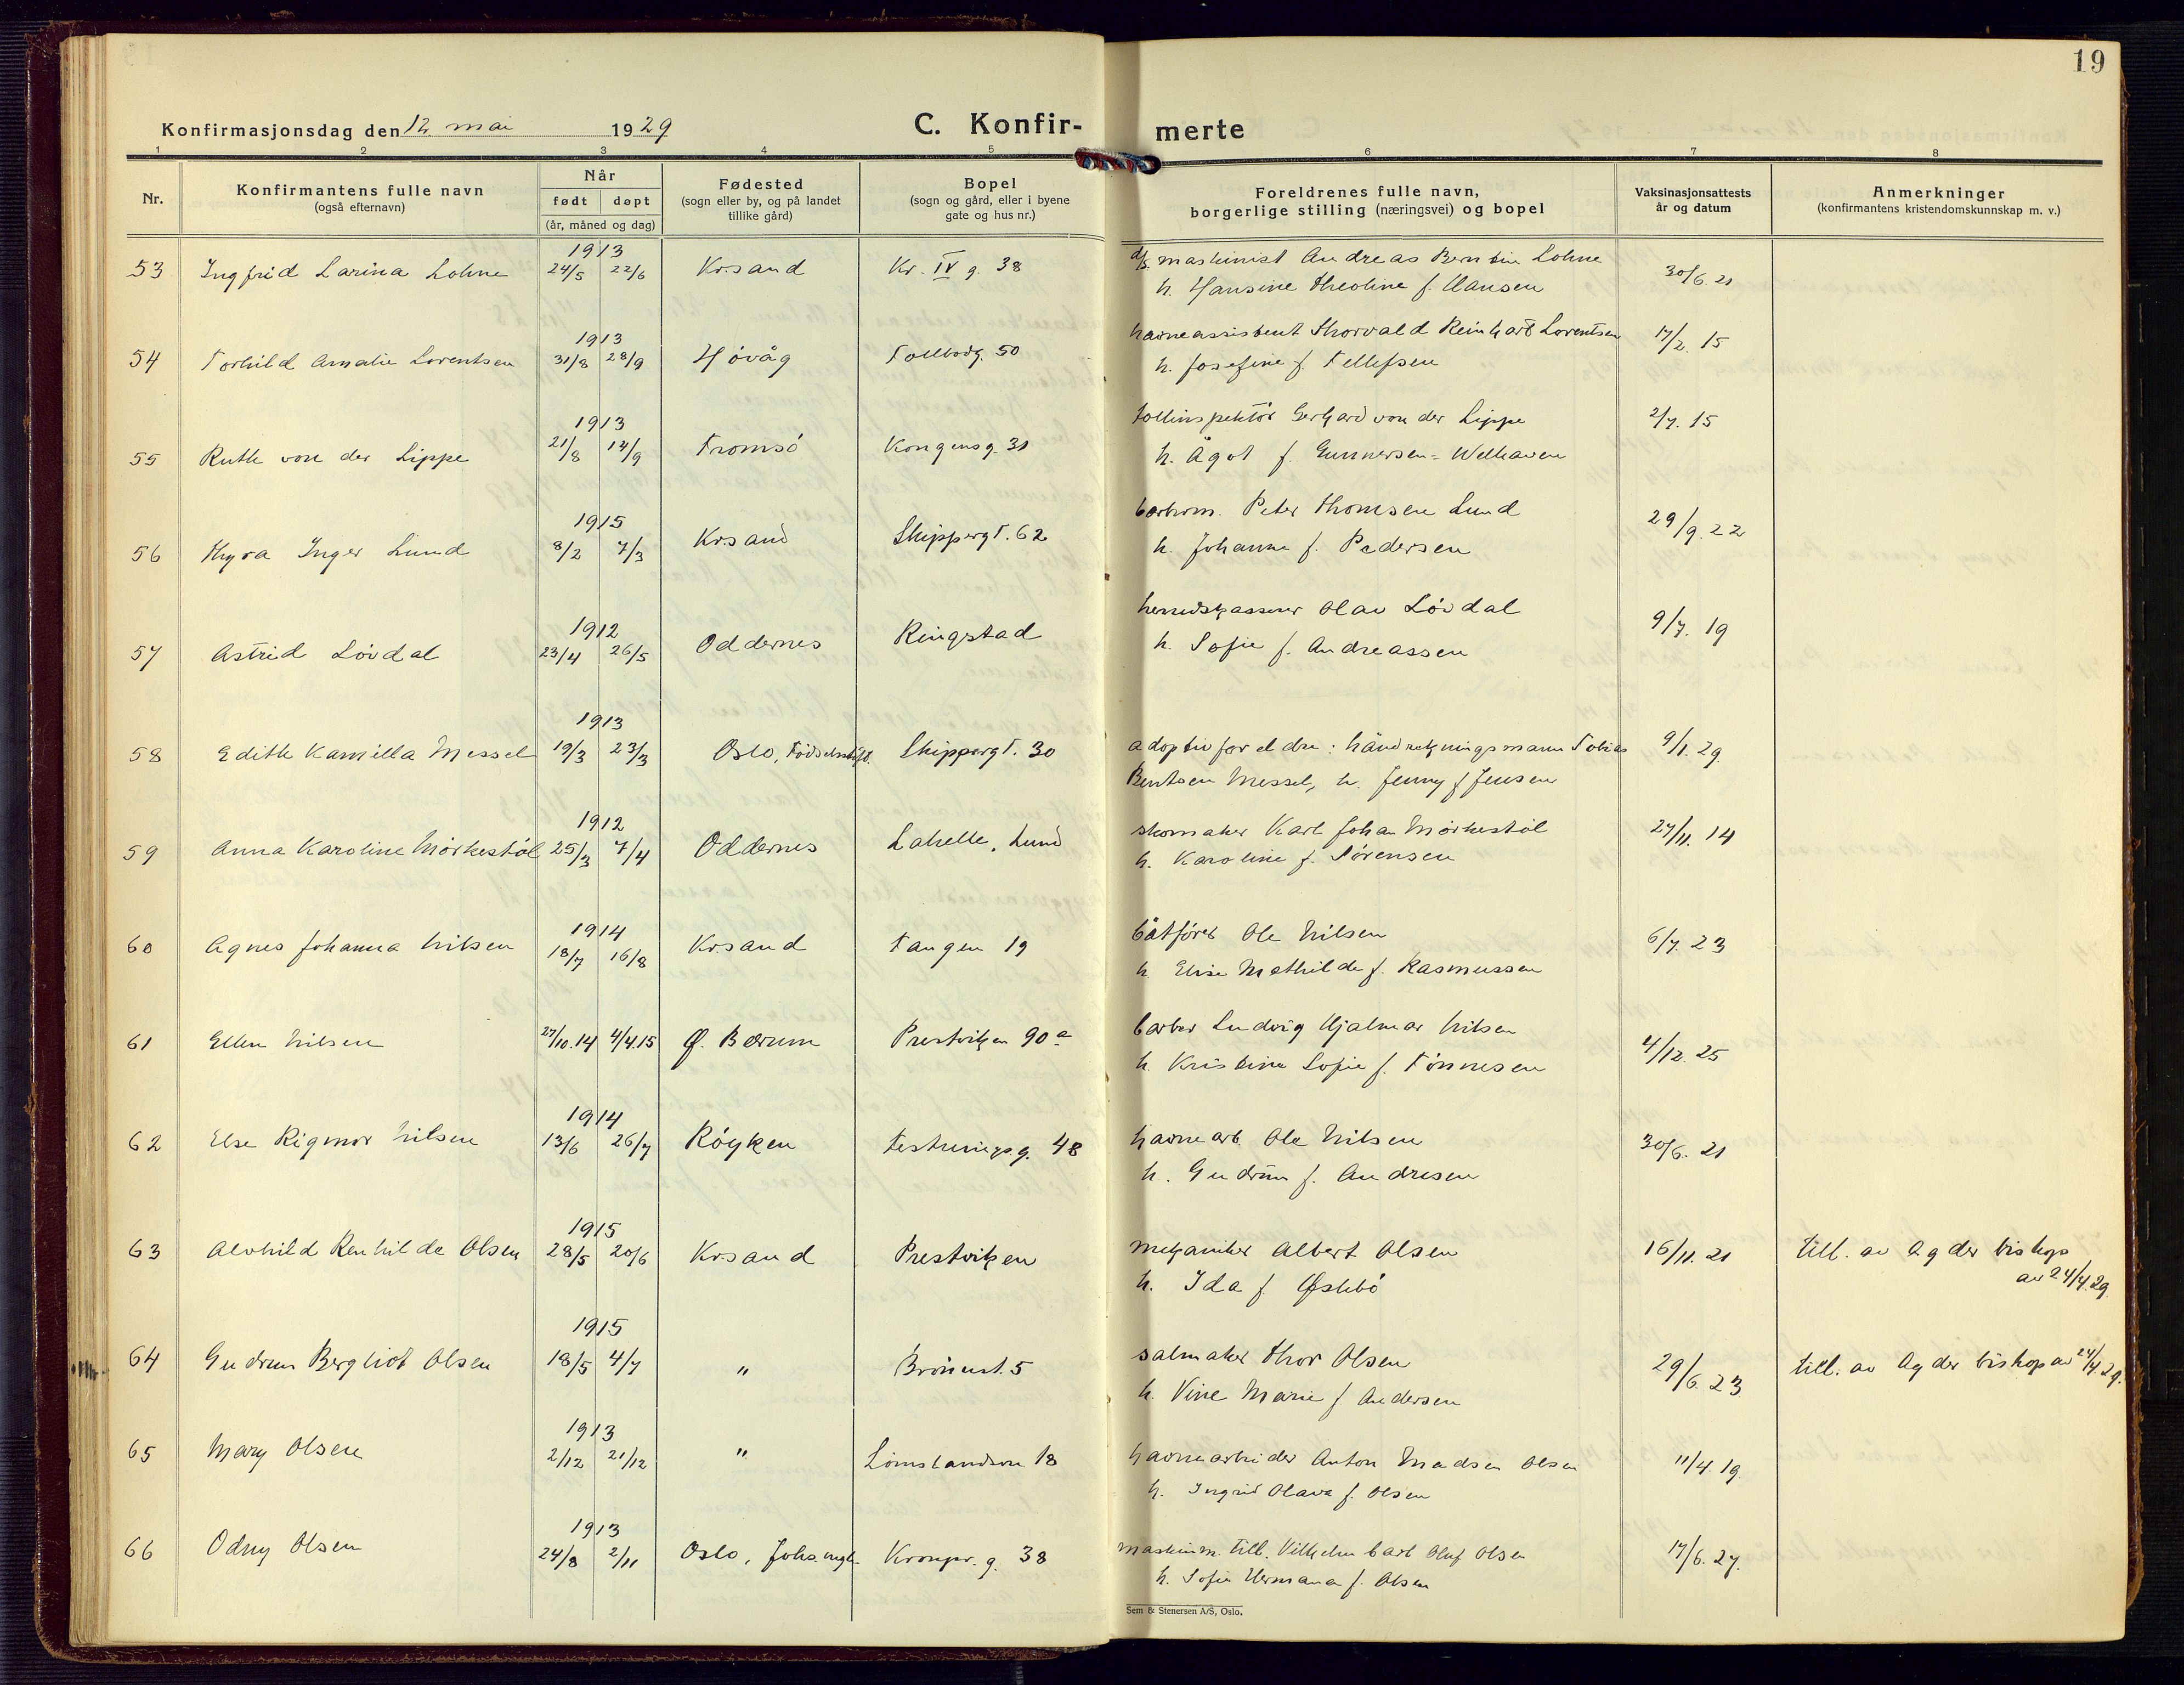 19
Konfirmasjonsdag den 12. mai 1929
C. Konfirmerte
1 2 3 4 5 6 7 8
Nr.
Konfirmantens fulle navn
(også efternavn)
Når
født døpt
(år, måned og dag)
Fødested
(sogn eller by, og på landet
tillike gård)
Bopel
(sogn og gård, eller i byene
gate og hus nr.)
Foreldrenes fulle navn,
borgerlige stilling (næringsvei) og bopel
Vaksinasjonsattests
år og datum
Anmerkninger
(konfirmantens kristendomskunnskap m. v.)
1913
53 Ingfrid Larina Lohne 24/5 22/6 Kr.sand Kr. IV g. 38 d/s. maskinist Andreas Berntin Lohne 30/6 21
h. Hansine Theoline f. Hansen
1913
54 Torhild Amalie Lorentsen 31/8 28/9 Høvåg Tollbodg. 50 havneassistent Thorvald Reinhart Lorentsen 17/2. 15
h. Josefine f. Tellefsen
1913
55 Ruth von der Lippe 21/8 14/9 Tromsö Kongensg. 31 tollinspektör Gerhard von der Lippe 2/7. 15
h. Ågot f. Gunnersen-Welhaven
1915
56 Thyra Inger Lund 8/2 7/3 Kr.sand Skippergt. 62 Peter Thomsen Lund 29/9. 22
h. Johanna f. Pedersen
1912
57 Astrid Lövdal 23/4 26/5 Oddernes Ringstad herredskasserer Olav Lövdal 9/7. 19
h. Sofie f. Andreassen
1913
58 Edith Kamilla Messel 19/3 23/3 Oslo, Födselsstift. Skippergt. 30 adoptivforeldre: håndrekningsmann Tobias 9/1. 29
Berntsen Messel, h. Jenny f Jensen
1912
59 Anna Karoline Mörkestöl 25/3 7/4 Oddernes Lahelle, Lund skomaker Karl Johan Mörkestöl 27/11. 14
h. Karoline f. Sörensen
1914
60 Agnes Johanna Nilsen 18/7 16/8 Kr.sand Tangen 19 båtförer Ole Nilsen 6/7. 23
h. Elise Mathilde f. Rasmussen
61 Ellen Nilsen 27/10.14 4/4.15 Ø. Bærum Prestviken 90 a barber Ludvig Hjalmar Nilsen 4/12. 25
h. Kristine Sofie f. Tönnesen
1914
62 Else Rigmor Nilsen 13/6 26/7 Röyken Festningsg. 48 havnearb. Ole Nilsen 30/6. 21
h. Gudrun f. Andresen
1915
63 Alvhild Renhilde Olsen 28/5 20/6 Kr.sand Prestviken mekaniker Albert Olsen 16/11. 21 till. av Agder biskop
h. Ida f Østebö av 24/4.29.
1915
64 Gudrun Bergliot Olsen 18/5 4/7 " Brönnst. 5 salmaker Thor Olsen 29/6. 23 till. av Agder biskop av 24/4.29.
h. Vine Marie f Andersen
1913
65 Mary Olsen 2/12 21/12 " 18 havnearbeider Anton Madsen Olsen 11/4. 19.
h. Ingrid Olava f. Olsen
1913
66 Odny Olsen 24/8 2/11 Oslo, Kronpr. g. 38 maskinm. till. Vilhelm Carl Oluf Olsen 17/6. 27.
h. Sofie Hermana f. Olsen
Sem & Stenersen A/S, Oslo.